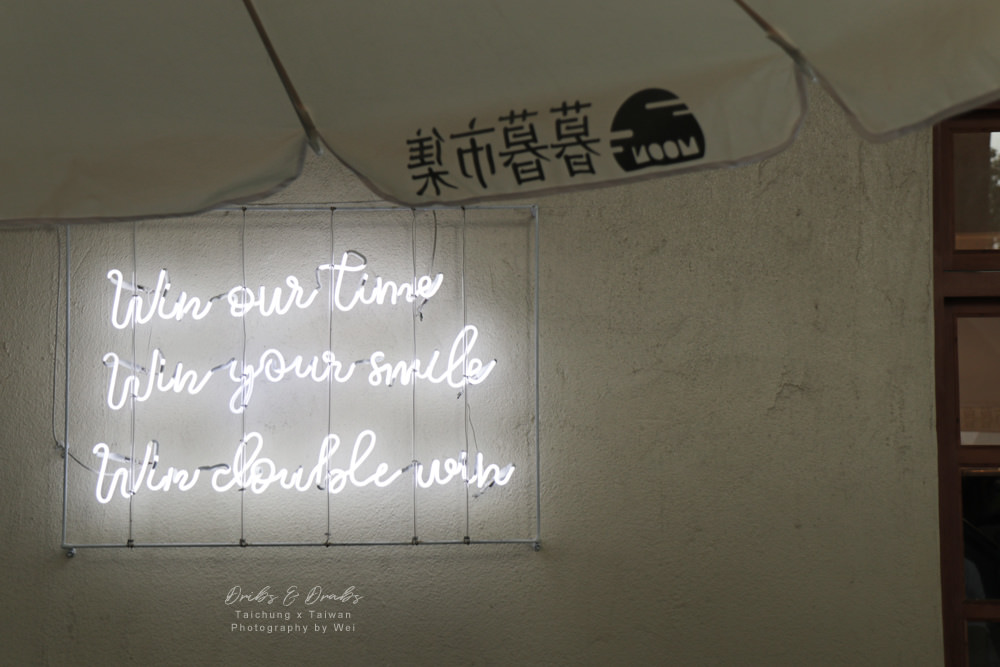 MOON 暮暮市集
Win our time
Win your smile
Win double win
Dribs & Drabs
Taichung x Taiwan
Photography by Wei